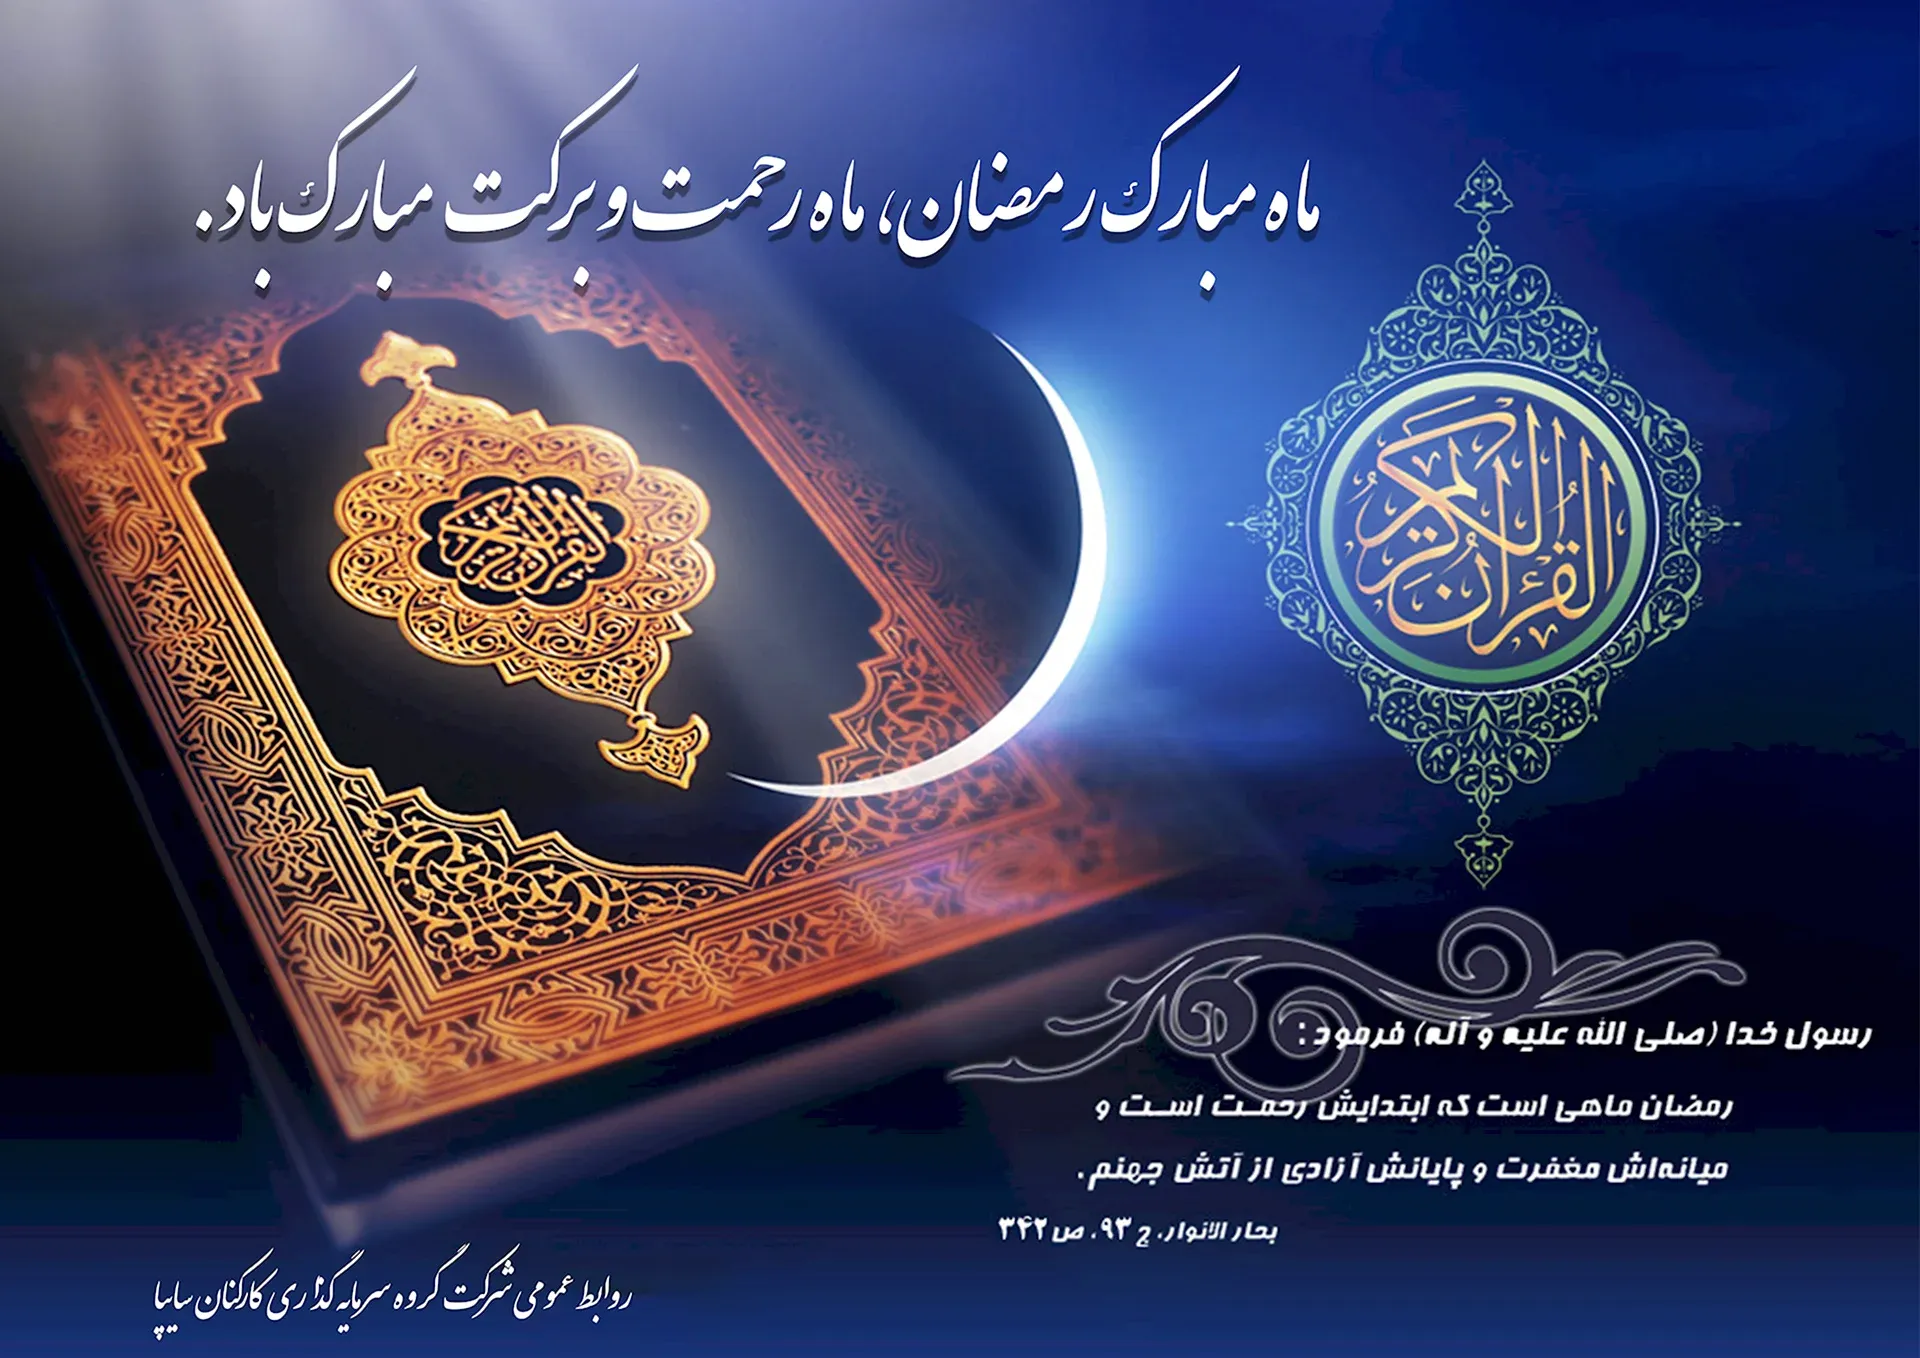 ماه مبارک رمضان، ماه رحمت و برکت مبارک باد.
القرآن الكريم
القُرآن الكريم
رسول خدا (صلی الله علیه و آله) فرمود:
رمضان ماهی است که ابتدایش رحمـت اسـت و
میانه‌اش مغفرت و پایانش آزادی از آتش جهنم.
بحار الانوار، ج ۹۳، ص ۳۴۲
روابط عمومی شرکت گروه سرمایه گذاری کارکنان سایپا